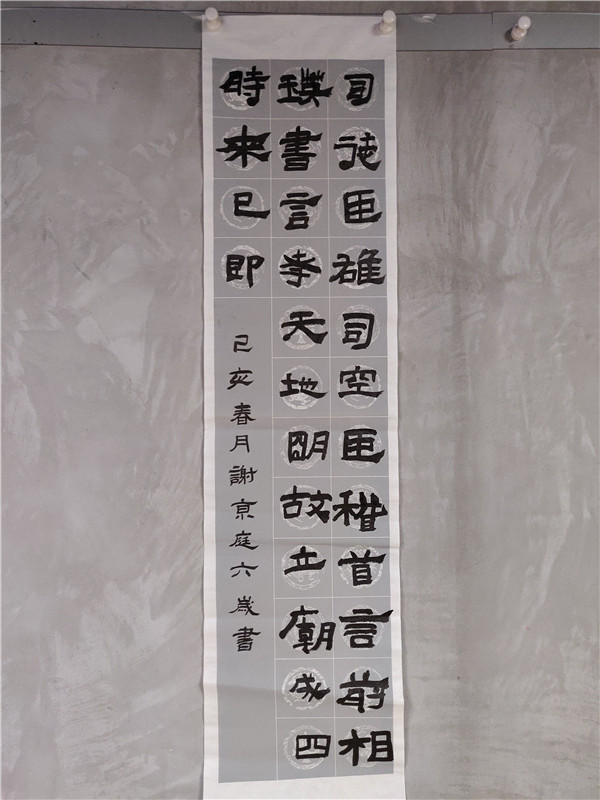 司徒臣雄司空臣稽首言前相
瑛書言孝天地明故立廟成四
時來已即
己亥春月謝京庭六歲書